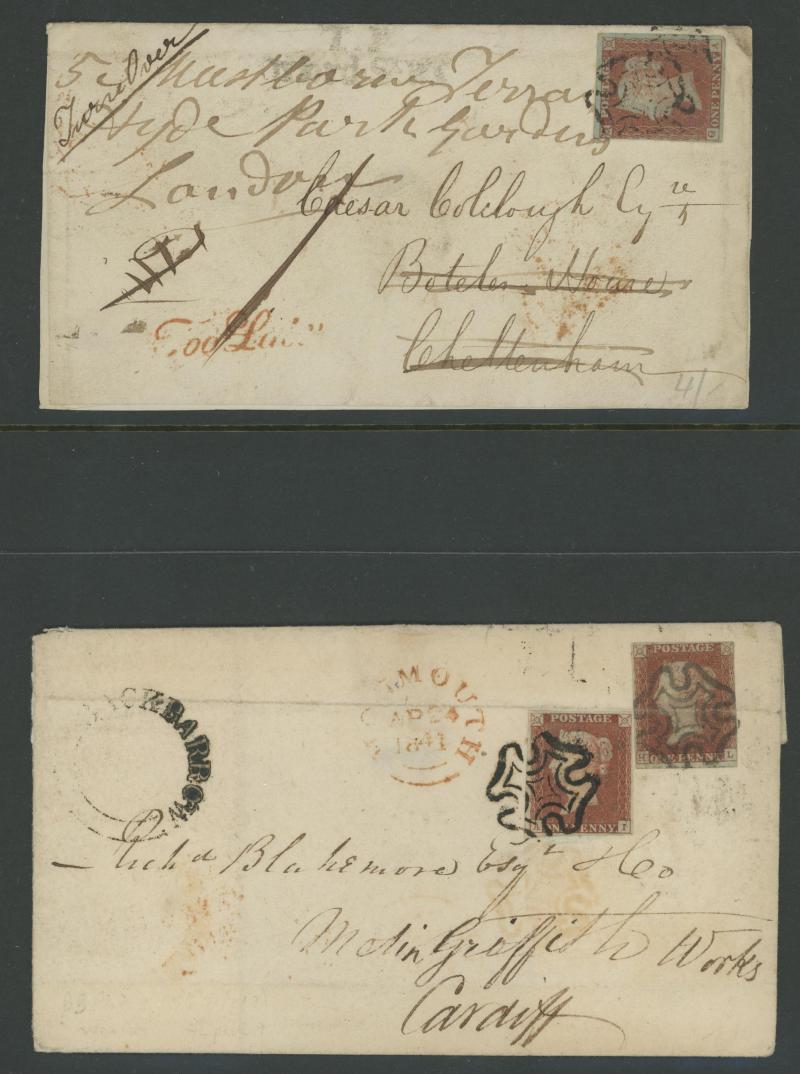 Turn Over
5 Terra
Hyde Park Gardens
London
Caesar Colclough Esqre
House
Cheltenham
Too Late
4/
ONE PENNY
BARROW
MOUTH
AP 24
1841
POSTAGE
H ONE PENNY L
POSTAGE
PENNY
Richd Blakemore Esqr & Co
Melin Griffith Works
Cardiff